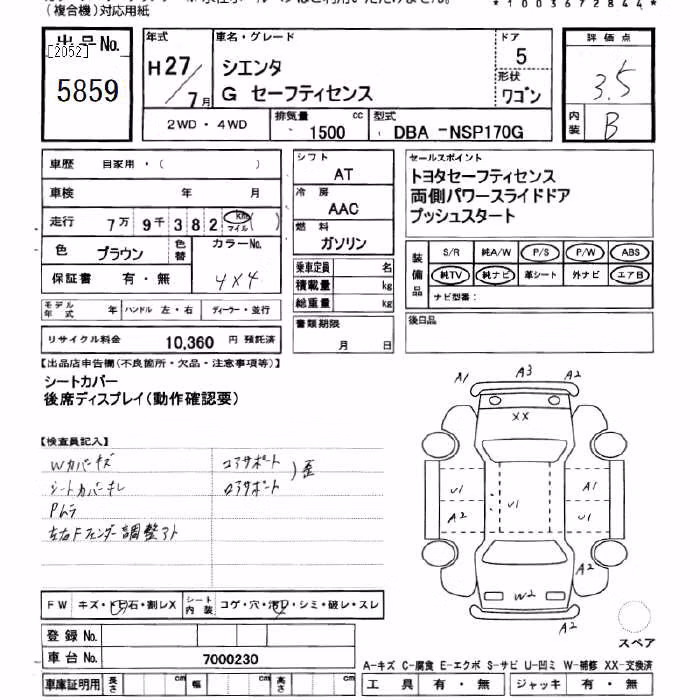 (複合機)対応用紙
*1003672844*
出品No.
[2052]
5859
年式
H27/7月
車名・グレード
シエンタ
G セーフティセンス
ドア
5
形状
ワゴン
評価点
3.5
内装
B
2WD・4WD
排気量
1500 cc
型式
DBA -NSP170G
車歴 自家用・( )
車検 年 月
走行 7万9千382 km マイル ( )
色 ブラウン 色替
カラーNo.
4X4
保証書 有・無
モデル年式 年 ハンドル 左・右 ディーラー・並行
リサイクル料金 10,360 円 預託済
シフト
AT
冷房
AAC
燃料
ガソリン
乗車定員 名
積載量 kg
総重量 kg
書類期限
月 日
セールスポイント
トヨタセーフティセンス
両側パワースライドドア
プッシュスタート
装備品
S/R 純A/W P/S P/W ABS
純TV 純ナビ 革シート 外ナビ エアB
ナビ型番:
後日品
【出品店申告欄(不良箇所・欠品・注意事項等)】
シートカバー
後席ディスプレイ(動作確認要)
【検査員記入】
Wカバーキズ
コアサポート
シートカバーキレ
ロアサポート
)歪
Pムラ
左右Fフェンダー調整アト
FW キズ・ドビ石・割レX
シート内装 コゲ・穴・汚レ・シミ・破レ・スレ
登録No.
車台No. 7000230
車庫証明用 長さ cm 幅 cm 高さ cm
A1 A3 A2
XX
U1 U1 A1
A2 U1
A2
W2
A2
スペア
A-キズ C-腐食 E-エクボ S-サビ U-凹ミ W-補修 XX-交換済
工具 有・無 ジャッキ 有・無